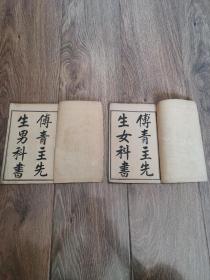 傅青主先
生男科書
傅青主先
生女科書